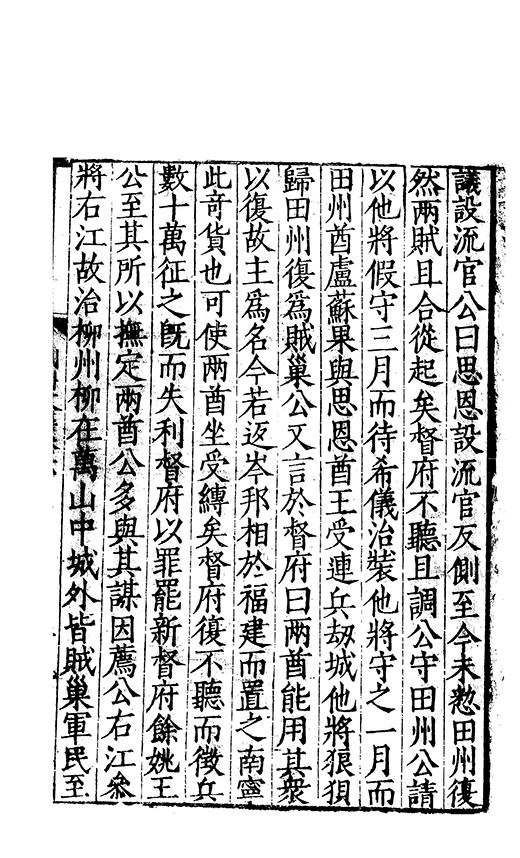 議設流官公曰思恩設流官反側至今未慭田州復
然兩賊且合從起矣督府不聽且調公守田州公請
以他將假守三月而待希儀治裝他將守之一月而
田州酋盧蘇果與思恩酋王受連兵刼城他將狼狽
歸田州復爲賊巢公又言於督府曰兩酋能用其衆
以復故主爲名今若返岑邦相於福建而置之南寧
此竒貨也可使兩酋坐受縛矣督府復不聽而徵兵
數十萬征之旣而失利督府以罪罷新督府餘姚王
公至其所以撫定兩酋公多與其謀因薦公右江叅
將右江故治柳州柳在萬山中城外皆賊巢軍民至